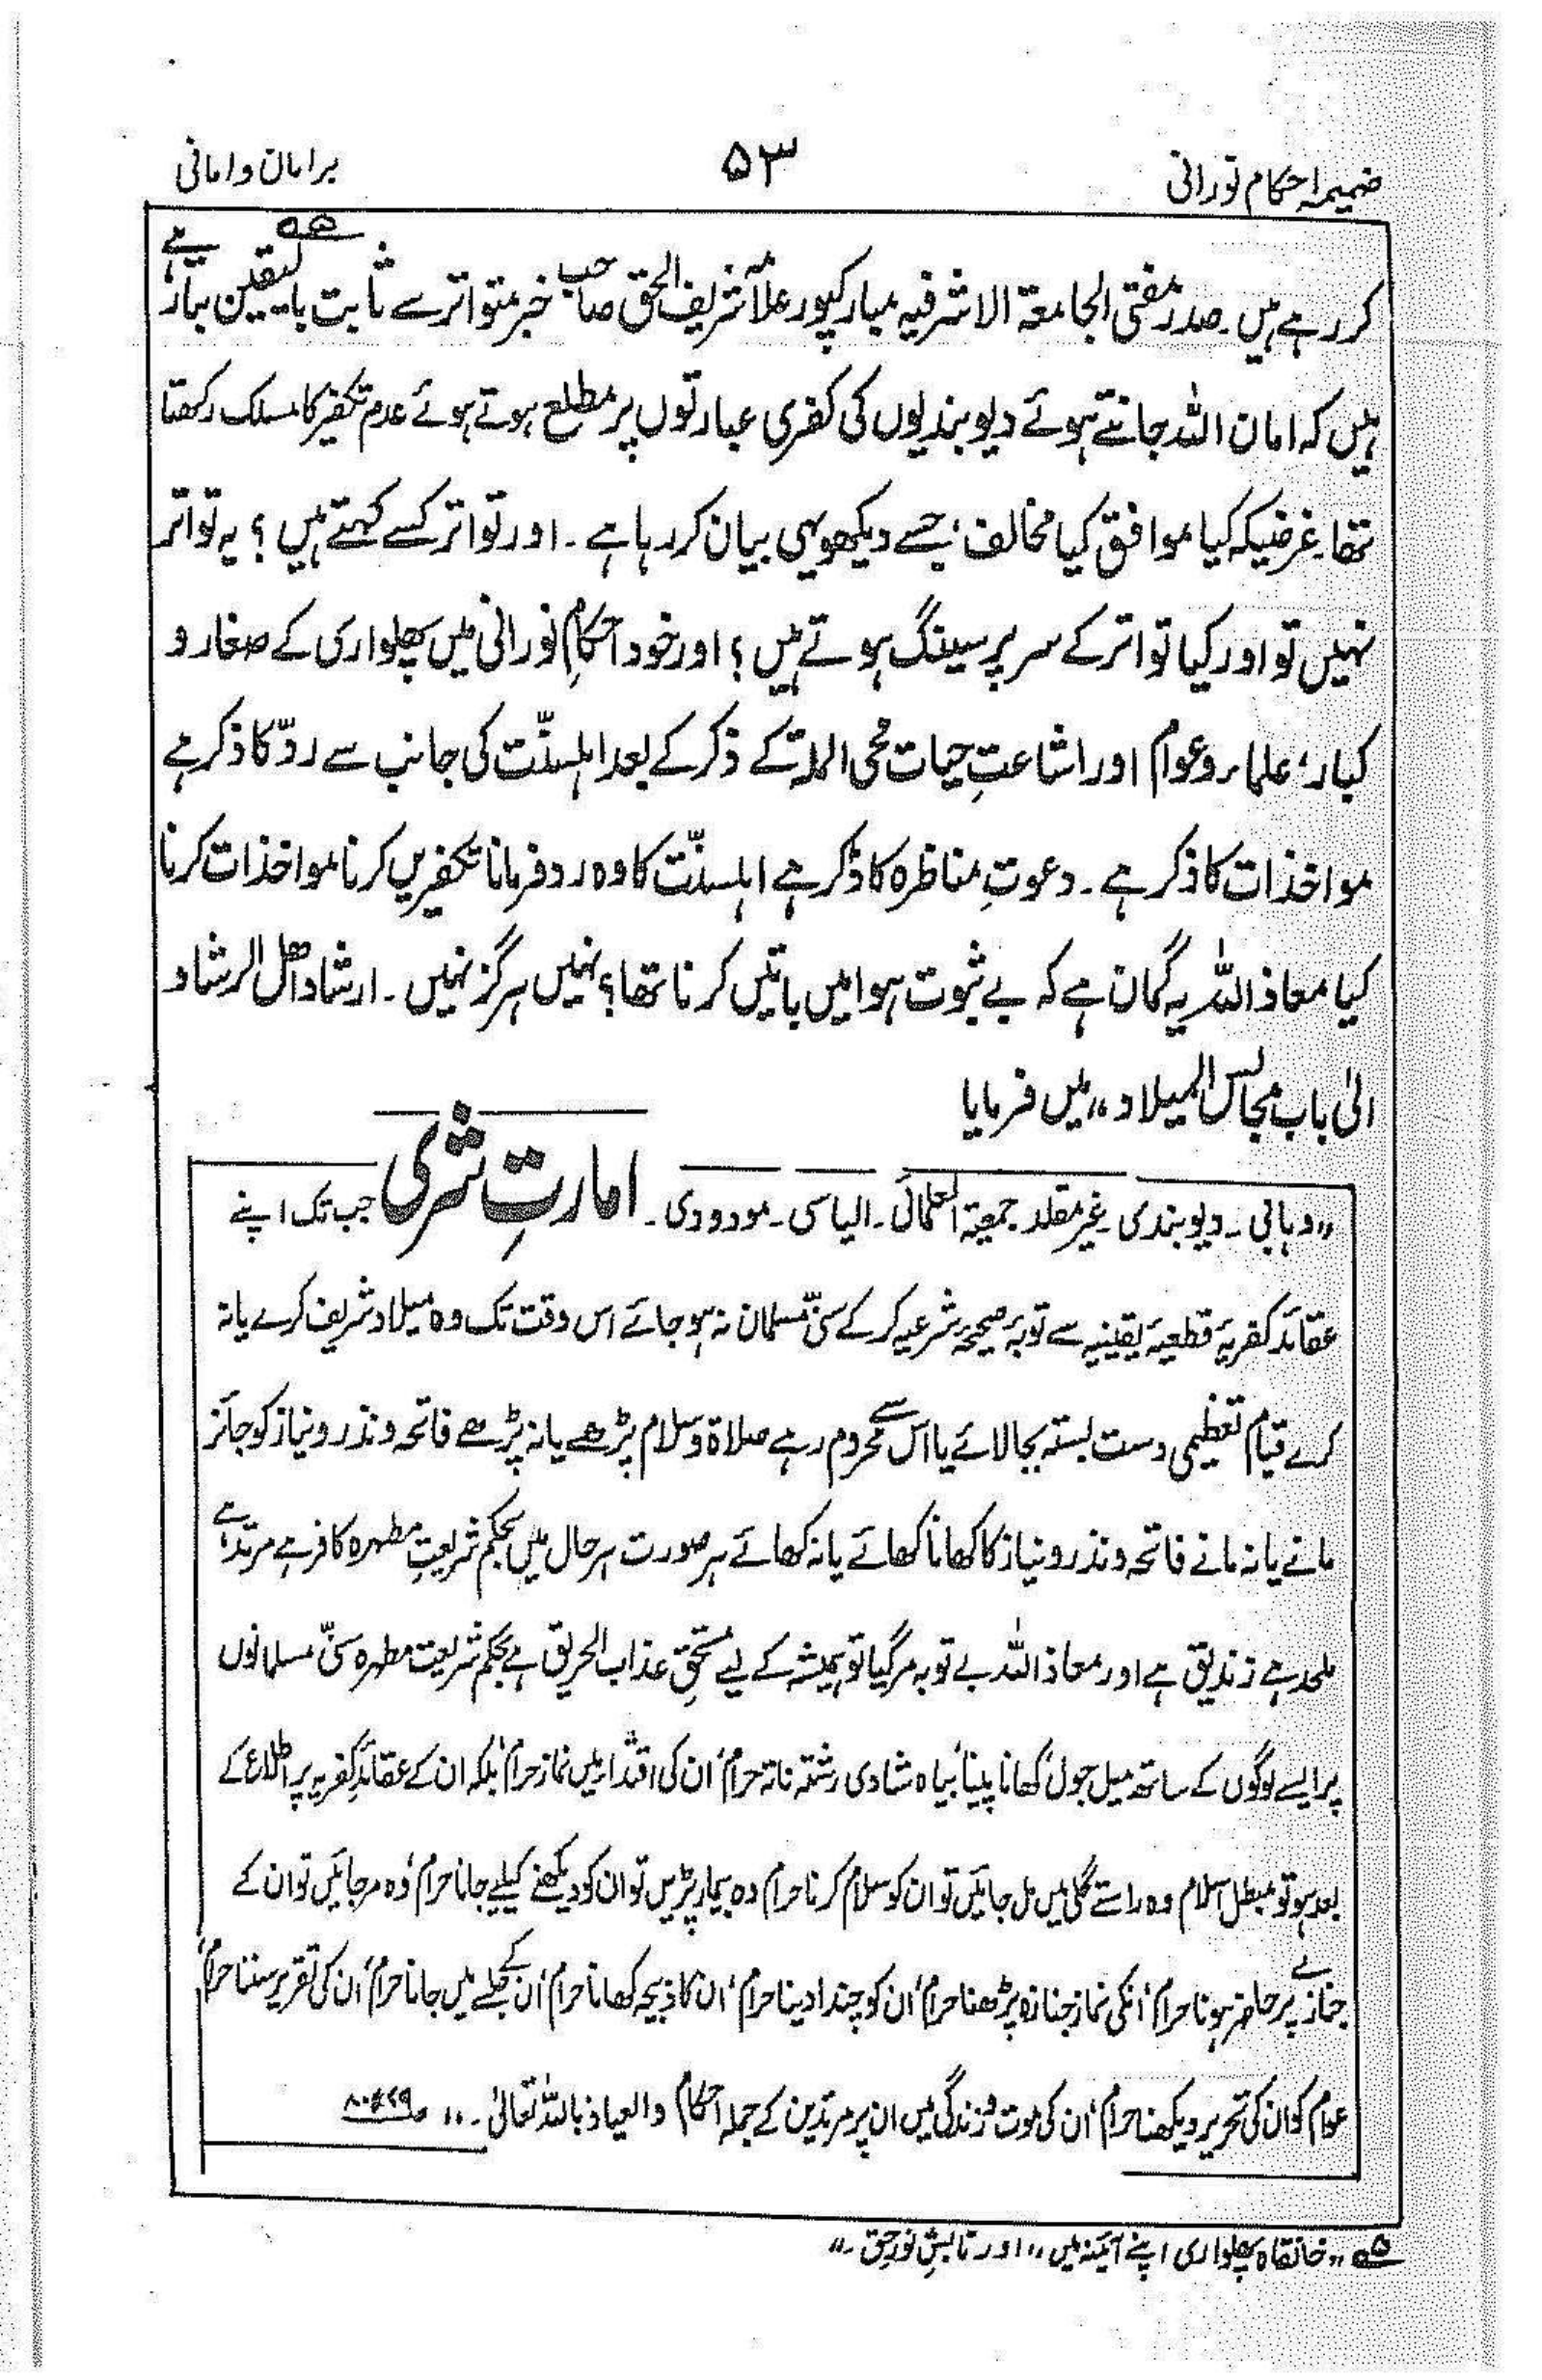 ضمیمہ احکام نورانی
۵۳
برامان و امانی
کر رہے ہیں۔ صدر مفتی الجامعۃ الاشرفیہ مبارکپور علامہ شریف الحق صاحب خبر متواتر سے ثابت بالیقین بتا رہے
ہیں کہ امان اللہ جانتے ہوئے دیوبندیوں کی کفری عبارتوں پر مطلع ہوتے ہوئے عدم تکفیر کا مسلک رکھتا
تھا۔ غرضیکہ کیا موافق کیا مخالف، جسے دیکھو یہی بیان کر رہا ہے۔ اور تواتر کسے کہتے ہیں؟ یہ تواتر
نہیں تو اور کیا تواتر کے سر پر سینگ ہوتے ہیں؟ اور خود احکامِ نورانی میں پھلواری کے صغار و
کبار، علماء و عوام اور اشاعتِ حیات محی الملۃ کے ذکر کے بعد اہلسنّت کی جانب سے ردّ کا ذکر ہے
مواخذات کا ذکر ہے۔ دعوتِ مناظرہ کا ذکر ہے اہلسنّت کا وہ رد فرمانا تکفیریں کرنا مواخذات کرنا
کیا معاذ اللہ یہ گمان ہے کہ بے ثبوت ہوا میں باتیں کرنا تھا؟ نہیں ہرگز نہیں۔ ارشاد اھل الرشاد
الیٰ باب مجالس المیلاد،، میں فرمایا
،،وہابی۔ دیوبندی غیر مقلد جمعیۃ العلمائی۔ الیاسی۔ مودودی۔ امارتِ شرعی جب تک اپنے
عقائد کفریہ قطعیہ یقینیہ سے توبہ صحیحہ شرعیہ کر کے سنی مسلمان نہ ہو جائے اس وقت تک وہ میلاد شریف کرے یا نہ
کرے قیام تعظیمی دست بستہ بجا لائے یا اس سے محروم رہے صلاۃ و سلام پڑھے یا نہ پڑھے فاتحہ و نذر و نیاز کو جائز
مانے یا نہ مانے فاتحہ و نذر و نیاز کا کھانا کھائے یا نہ کھائے ہر صورت ہر حال میں بحکم شریعتِ مطہرہ کافر ہے مرتد ہے
ملحد ہے زندیق ہے اور معاذ اللہ بے توبہ مر گیا تو ہمیشہ کے لیے مستحقِ عذاب الحریق ہے بحکم شریعت مطہرہ سنیّ مسلمانوں
پر ایسے لوگوں کے ساتھ میل جول، کھانا پینا، بیاہ شادی رشتہ ناتہ حرام، ان کی اقتداء میں نماز حرام، بلکہ ان کے عقائدِ کفریہ پر اطلاع کے
بعد ہو تو مبطل اسلام وہ راستے گلی میں مل جائیں تو ان کو سلام کرنا حرام وہ بیمار پڑیں تو ان کو دیکھنے کیلیے جانا حرام، وہ مر جائیں تو ان کے
جنازے پر حاضر ہونا حرام، انکی نماز جنازہ پڑھنا حرام، ان کو چندا دینا حرام، ان کا ذبیحہ کھانا حرام، ان کے جلسے میں جانا حرام، ان کی تقریر سننا حرام،
عوام کو ان کی تحریر دیکھنا حرام، ان کی موت و زندگی میں ان پر مرتدین کے جملہ احکام والعیاذ باللہ تعالیٰ۔،،
،،خانقاہ پھلواری اپنے آئینہ میں،، اور تابشِ نورِ حق۔،،